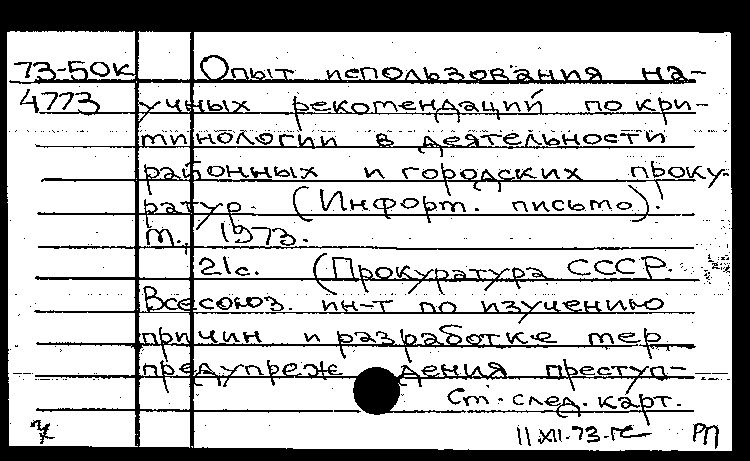 73-50к Опыт использования на-
4773 учных рекомендаций по кри-
минологии в деятельности
районных и городских проку-
ратур. (Информ. письмо).
М., 1973.
21с. (Прокуратура СССР.
Всесоюз. ин-т по изучению
причин и разработке мер
предупреждения преступ-
См. след. карт.
11 XII-73
РП